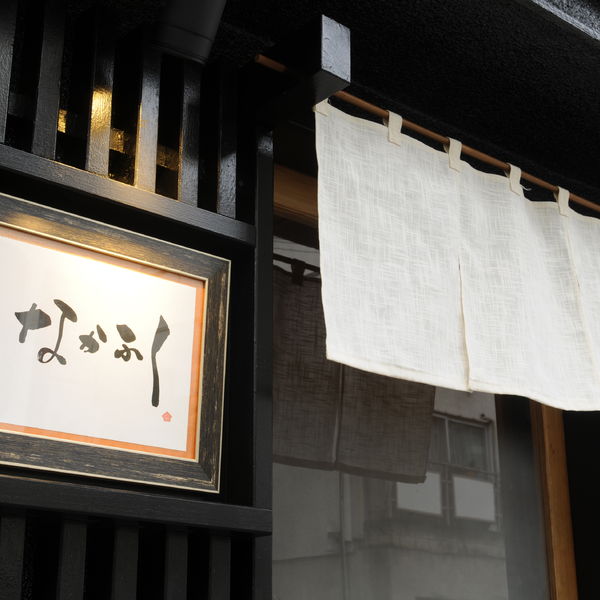 なかふし